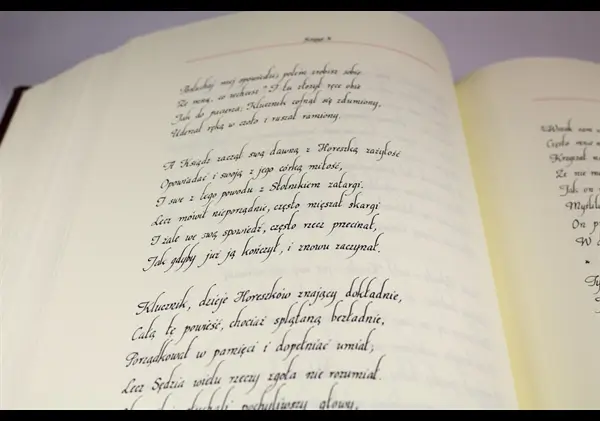 Księga X
Posłuchaj mej spowiedzi, potem zrobisz sobie
Ze mną, co zechcesz". I tu złożył ręce obie
Jak do pacierza; Klucznik cofnął się zdumiony,
Uderzał ręką w czoło i ruszał ramiony.
A Ksiądz zaczął swą dawną z Horeszką zażyłość
Opowiadać i swoją z jego córką miłość,
I swe z tego powodu z Stolnikiem zatargi.
Lecz mówił nieporządnie, często mięszał skargi
I żale we swą spowiedź, często rzecz przecinał,
Jak gdyby już ją kończył, i znowu zaczynał.
Klucznik, dzieje Horeszków znający dokładnie,
Całą tę powieść, chociaż splątaną bezładnie,
Porządkował w pamięci i dopełniać umiał;
Lecz Sędzia wielu rzeczy zgoła nie rozumiał.
pochyliwszy głowy,
Często
Krzyczał
Że nie
Jak on
On
W